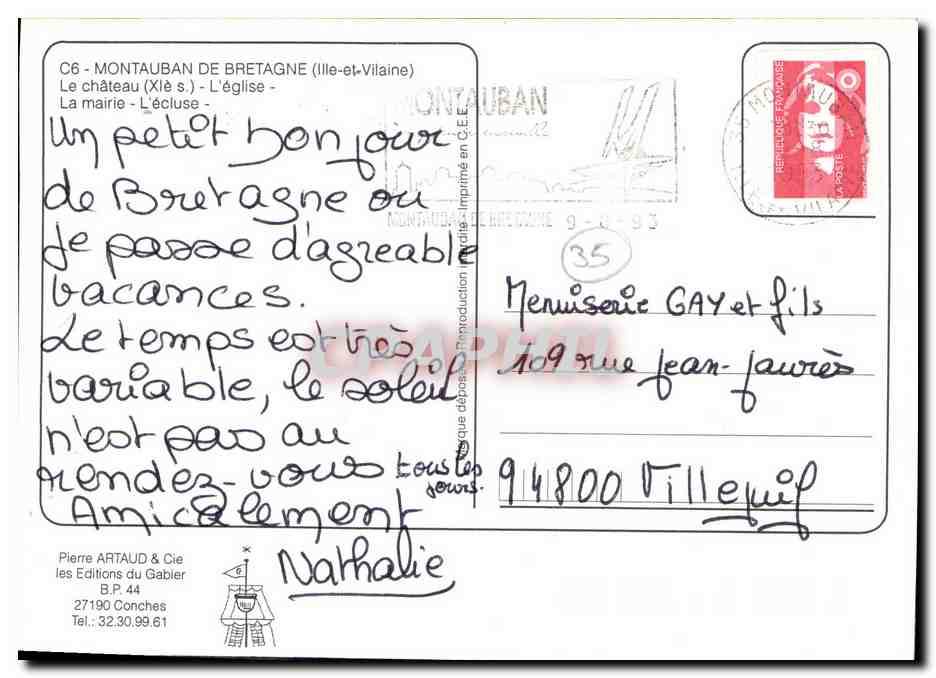 C6 - MONTAUBAN DE BRETAGNE (Ille-et-Vilaine)
Le château (XIè s.) - L'église -
La mairie - L'écluse -
Un petit bonjour
de Bretagne ou
je passe d'agreable
vacances.
Le temps est très
variable, le soleil
n'est pas au
rendez-vous tous les
jours.
Amicalement
Nathalie
Pierre ARTAUD & Cie
les Editions du Gabier
B.P. 44
27190 Conches
Tel.: 32.30.99.61
Reproduction interdite - Imprimé en C.E.E.
MONTAUBAN
MONTAUBAN DE BRETAGNE 9-8-93
35
REPUBLIQUE FRANÇAISE
LA POSTE
Menuiserie GAY et fils
109 rue Jean-Jaurès
94800 Villejuif
CPAPHIL